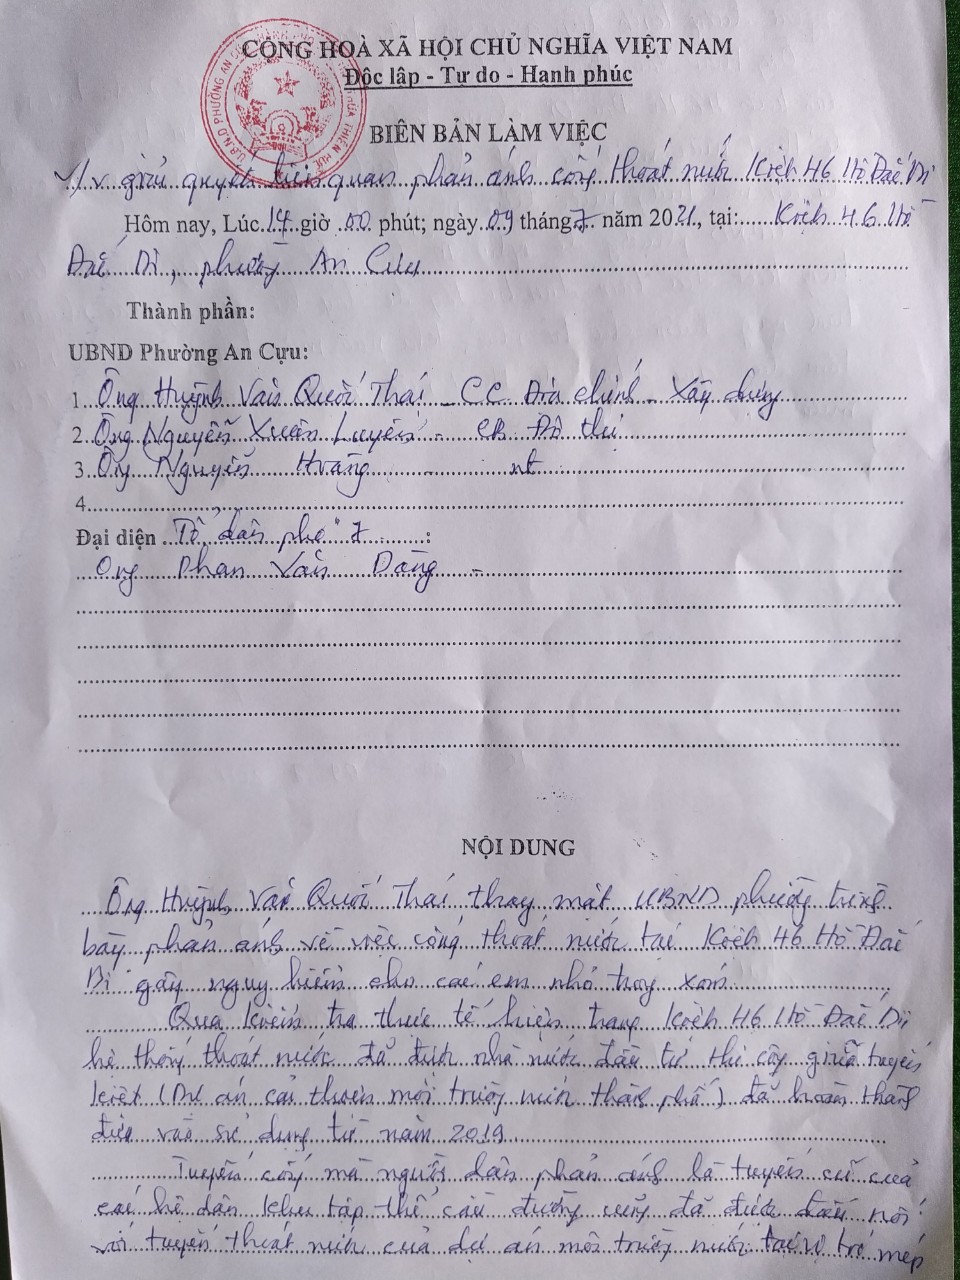 CỘNG HOÀ XÃ HỘI CHỦ NGHĨA VIỆT NAM
Độc lập - Tự do - Hạnh phúc
BIÊN BẢN LÀM VIỆC
V/v giải quyết liên quan phản ánh cống thoát nước Kiệt 46 Hồ Đắc Di
Hôm nay, Lúc 14 giờ 00 phút; ngày 09 tháng 7 năm 2021, tại: Kiệt 46 Hồ
Đắc Di, phường An Cựu
Thành phần:
UBND Phường An Cựu:
1. Ông Huỳnh Văn Quốc Thái - CC Địa chính - Xây dựng
2. Ông Nguyễn Xuân Luyến - CB Đô thị
3. Ông Nguyễn Hoàng - nt
4.
Đại diện Tổ dân phố 7 :
Ông Phan Văn Dũng -
NỘI DUNG
Ông Huỳnh Văn Quốc Thái thay mặt UBND phường trình
bày phản ánh về việc cống thoát nước tại Kiệt 46 Hồ Đắc
Di gây nguy hiểm cho các em nhỏ trong xóm.
Qua kiểm tra thực tế hiện trạng Kiệt 46 Hồ Đắc Di
hệ thống thoát nước đã được nhà nước đầu tư thi công giữa tuyến
kiệt (Dự án cải thiện môi trường nước thành phố) đã hoàn thành
đưa vào sử dụng từ năm 2019
Tuyến cống mà người dân phản ánh là tuyến cũ của
các hộ dân khu tập thể cầu đường cũng đã được đấu nối
với tuyến thoát nước của dự án môi trường nước tại vị trí mép